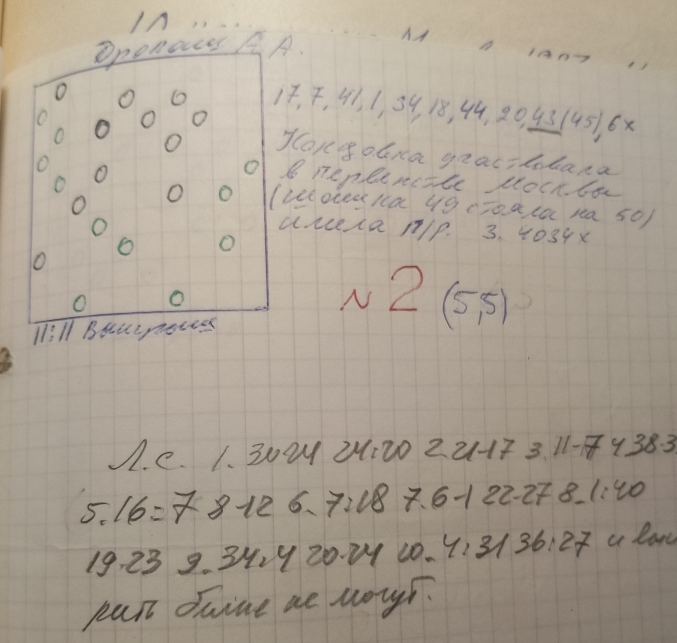 А.А.
17, 7, 41, 1, 34, 18, 44, 20, 43 (45), 6x
Концовка участвовала
в первенстве Москвы
(шашка 49 стояла на 50)
имела п/р. 3. 4034x
№ 2 (5,5)
11:11 Выигрыш
Л.с. 1. 24:20 2. 21-17 3. 11-7 4 38-3
5. 16=7 8-12 6. 7:18 7. 6-1 22-27 8. 1:40
19-23 9. 34:4 20-24 10. 4:31 36:27 и
рить белые не могут.